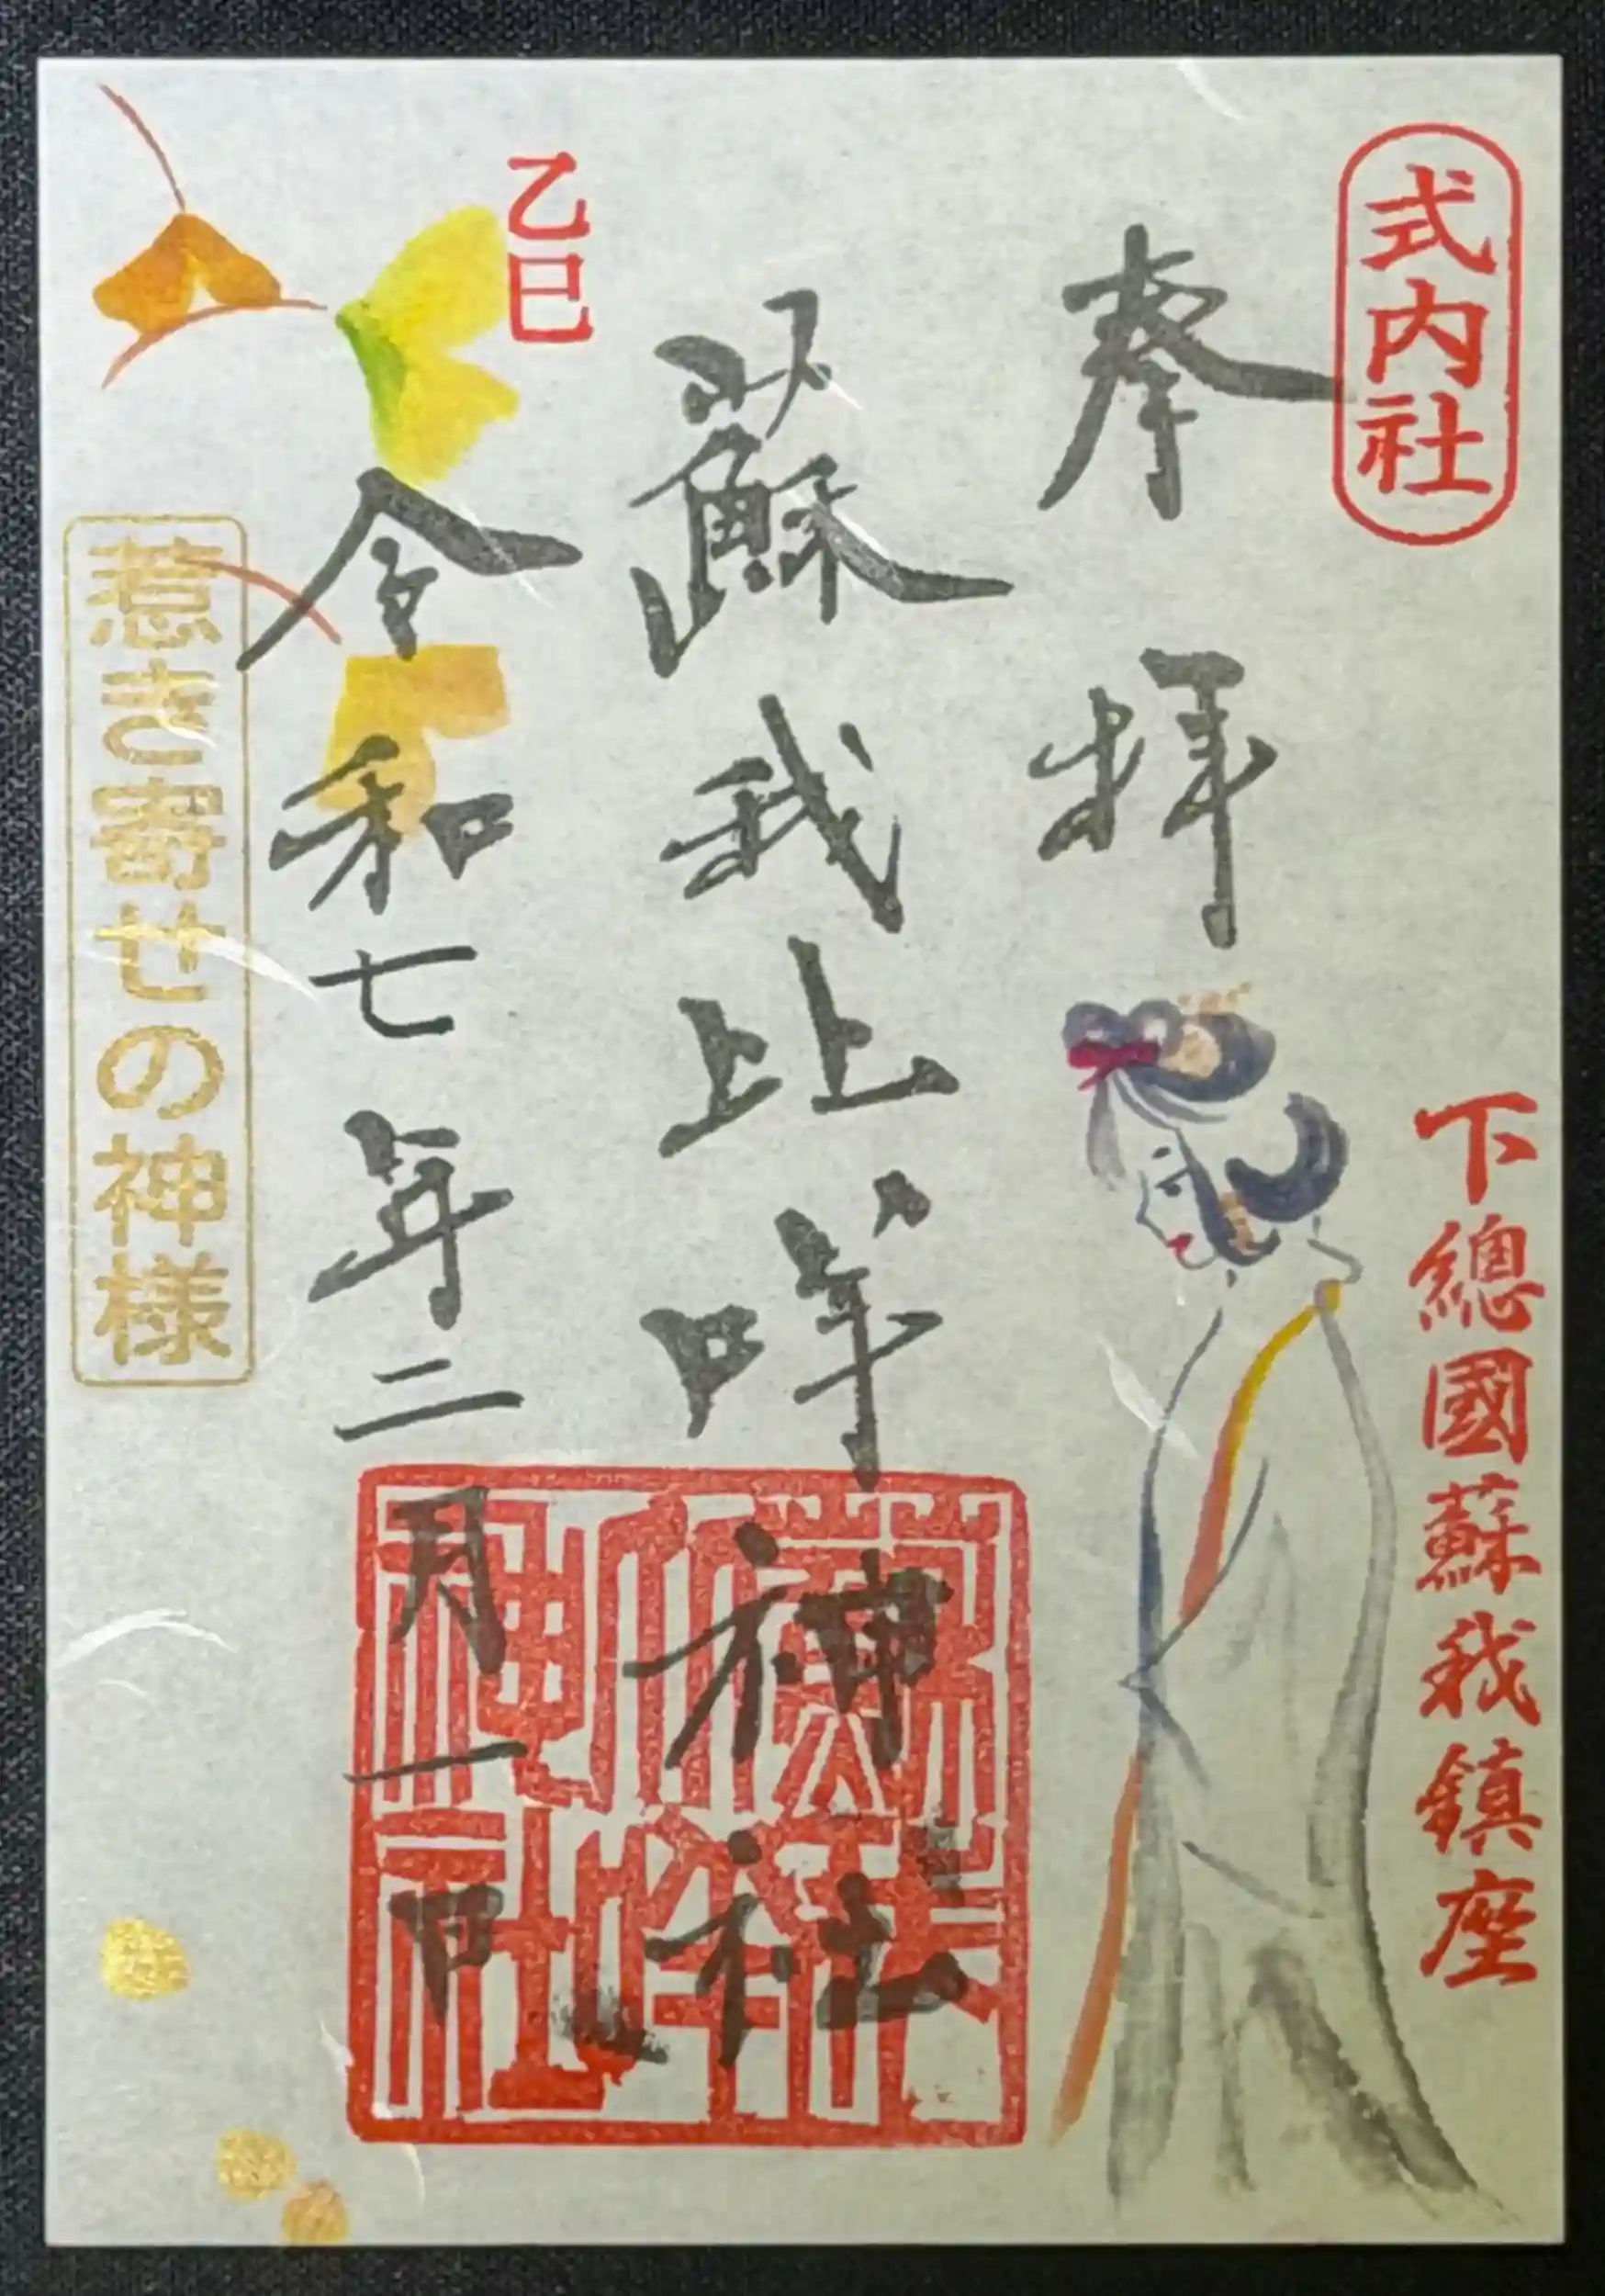 式内社
奉拝
下總國蘇我鎮座
蘇我比咩神社
乙巳
令和七年二月一日
惹き寄せの神様